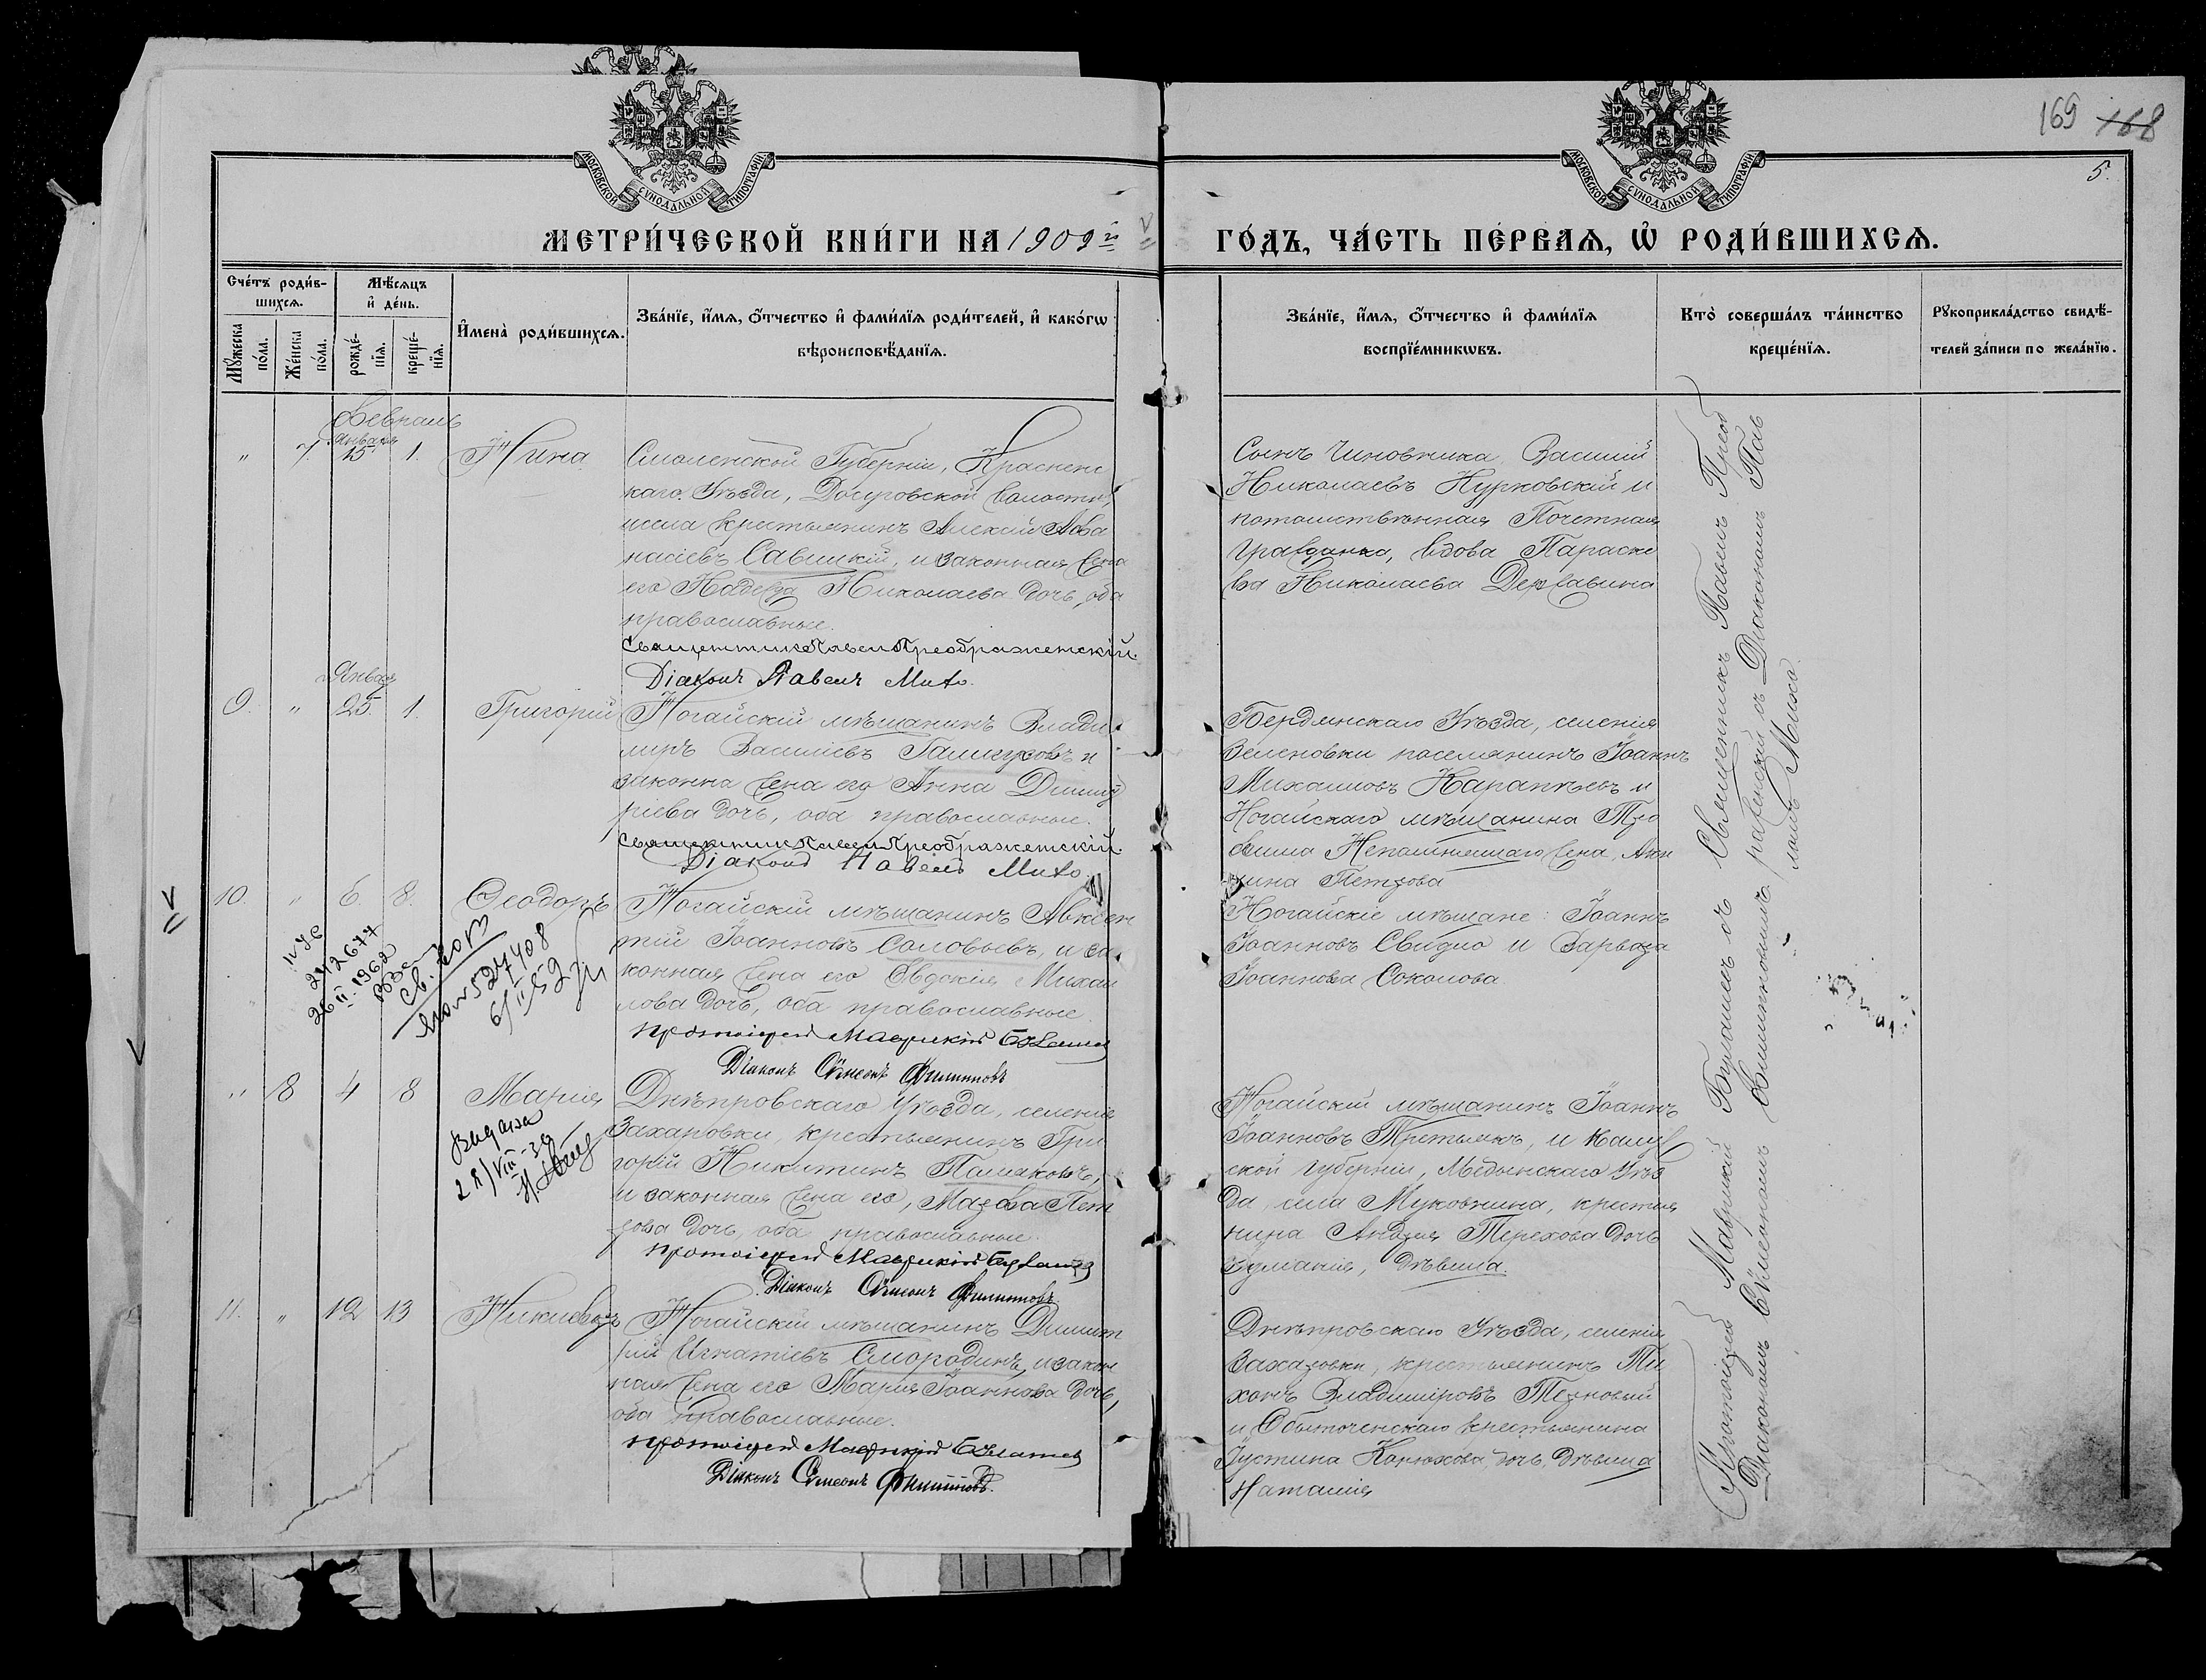 169 168
5.
МОСКОВСКОЙ СѴНОДАЛЬНОЙ ТИПОГРАФІИ
МОСКОВСКОЙ СѴНОДАЛЬНОЙ ТИПОГРАФІИ
МЕТРИ́ЧЕСКОЙ КНИ́ГИ НА 1909й ГО́ДЪ, ЧА́СТЬ ПЕ́РВАѦ, Ѡ҆ РОДИ́ВШИХСѦ.
Сче́тъ роди́в-
шихсѧ.
Мꙋ́жеска по́ла.
Же́нска по́ла.
Мѣ́сѧцъ
и҆ де́нь.
рожде́-нїѧ.
креще́-нїѧ.
И҆мена̀ роди́вшихсѧ.
Зва́нїе, и҆́мѧ, ѻ҆́тчество и҆ фами́лїѧ роди́телей, и҆ како́гѡ
вѣроисповѣ́данїѧ.
Зва́нїе, и҆́мѧ, ѻ҆́тчество и҆ фами́лїѧ
воспрїе́мникѡвъ.
Кто̀ соверша́лъ та́инство
креще́нїѧ.
Рꙋкоприкла́дство свидѣ́-
телей за́писи по жела́нїю.
Февраль
Января
" 7. 15. 1. Нина
Смоленской Губерніи, Красненс
каго Уѣзда, Досуговской волости,
крестьянинъ Алексій Аѳа
насіевъ Савицкій, и законная жена
его Надежда Николаева дочь, оба
православные.
Священникъ Павелъ Преображенскій
Діаконъ Павелъ
Сынъ Чиновника Василій
Николаевъ Нурковскій и
потомственная Почетная
Гражданка, вдова Параске
ва Николаева Державина
Января
9. " 25. 1. Григорій
Ногайскій мѣщанинъ Влади
миръ Василіевъ и
законна жена его Анна Димит
ріева дочь, оба православные.
Священникъ Павелъ Преображенскій
Діаконъ Павелъ
Бердянскаго Уѣзда, селенія
Зеленовки поселянинъ Іоаннъ
Михаиловъ и
Ногайскаго мѣщанина Тро
фима Непомнящаго жена, Аку
лина Петрова
10. " 6. 8. Ѳеодоръ
Ногайскій мѣщанинъ Авксен
тій Іоанновъ Соловьевъ, и за
конная жена его Евдокія Михаи
лова дочь, оба православные.
протоіерей Маврикій
Діаконъ Сѵмеонъ Филипповъ
Ногайскіе мѣщане: Іоаннъ
Іоанновъ Свидло и Варвара
Іоаннова Соколова.
242677
26 II 1960
527408
6/II 52
" 8 4 8 Марія
Днѣпровскаго Уѣзда, селенія
Захаровки, крестьянинъ Гри
горій Никитинъ
и законная жена его, Марѳа Пет
рова дочь, оба православные.
протоіерей Маврикій
Діаконъ Сѵмеонъ Филипповъ
Ногайскій мѣщанинъ Іоаннъ
Іоанновъ Третьякъ, и Калуж
ской губерніи, Медынскаго Уѣз
да, села Муковнина, крестья
нина Андрея Терехова дочь
дѣвица.
Выдана
11. " 12 13 Никифоръ
Ногайскій мѣщанинъ Димит
рій Игнатіевъ Смородинъ, и закон
ная жена его Марія Іоаннова дочь,
оба православные.
протоіерей Маврикій
Діаконъ Сѵмеонъ Филипповъ.
Днѣпровскаго Уѣзда, селенія
Захаровки, крестьянинъ Ти
хонъ Владиміровъ Терновый
и Обыточенскаго крестьянина
Іустина дочь, дѣвица
Наталія
Протоіерей Маврикій съ Священникъ Павелъ Преоб
Діакономъ Сѵмеономъ Филипповымъ раженскій съ Діакономъ Пав
ломъ